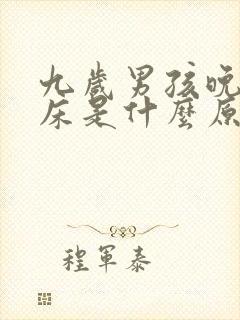 九歲男孩晚
床是什麼原
程軍泰